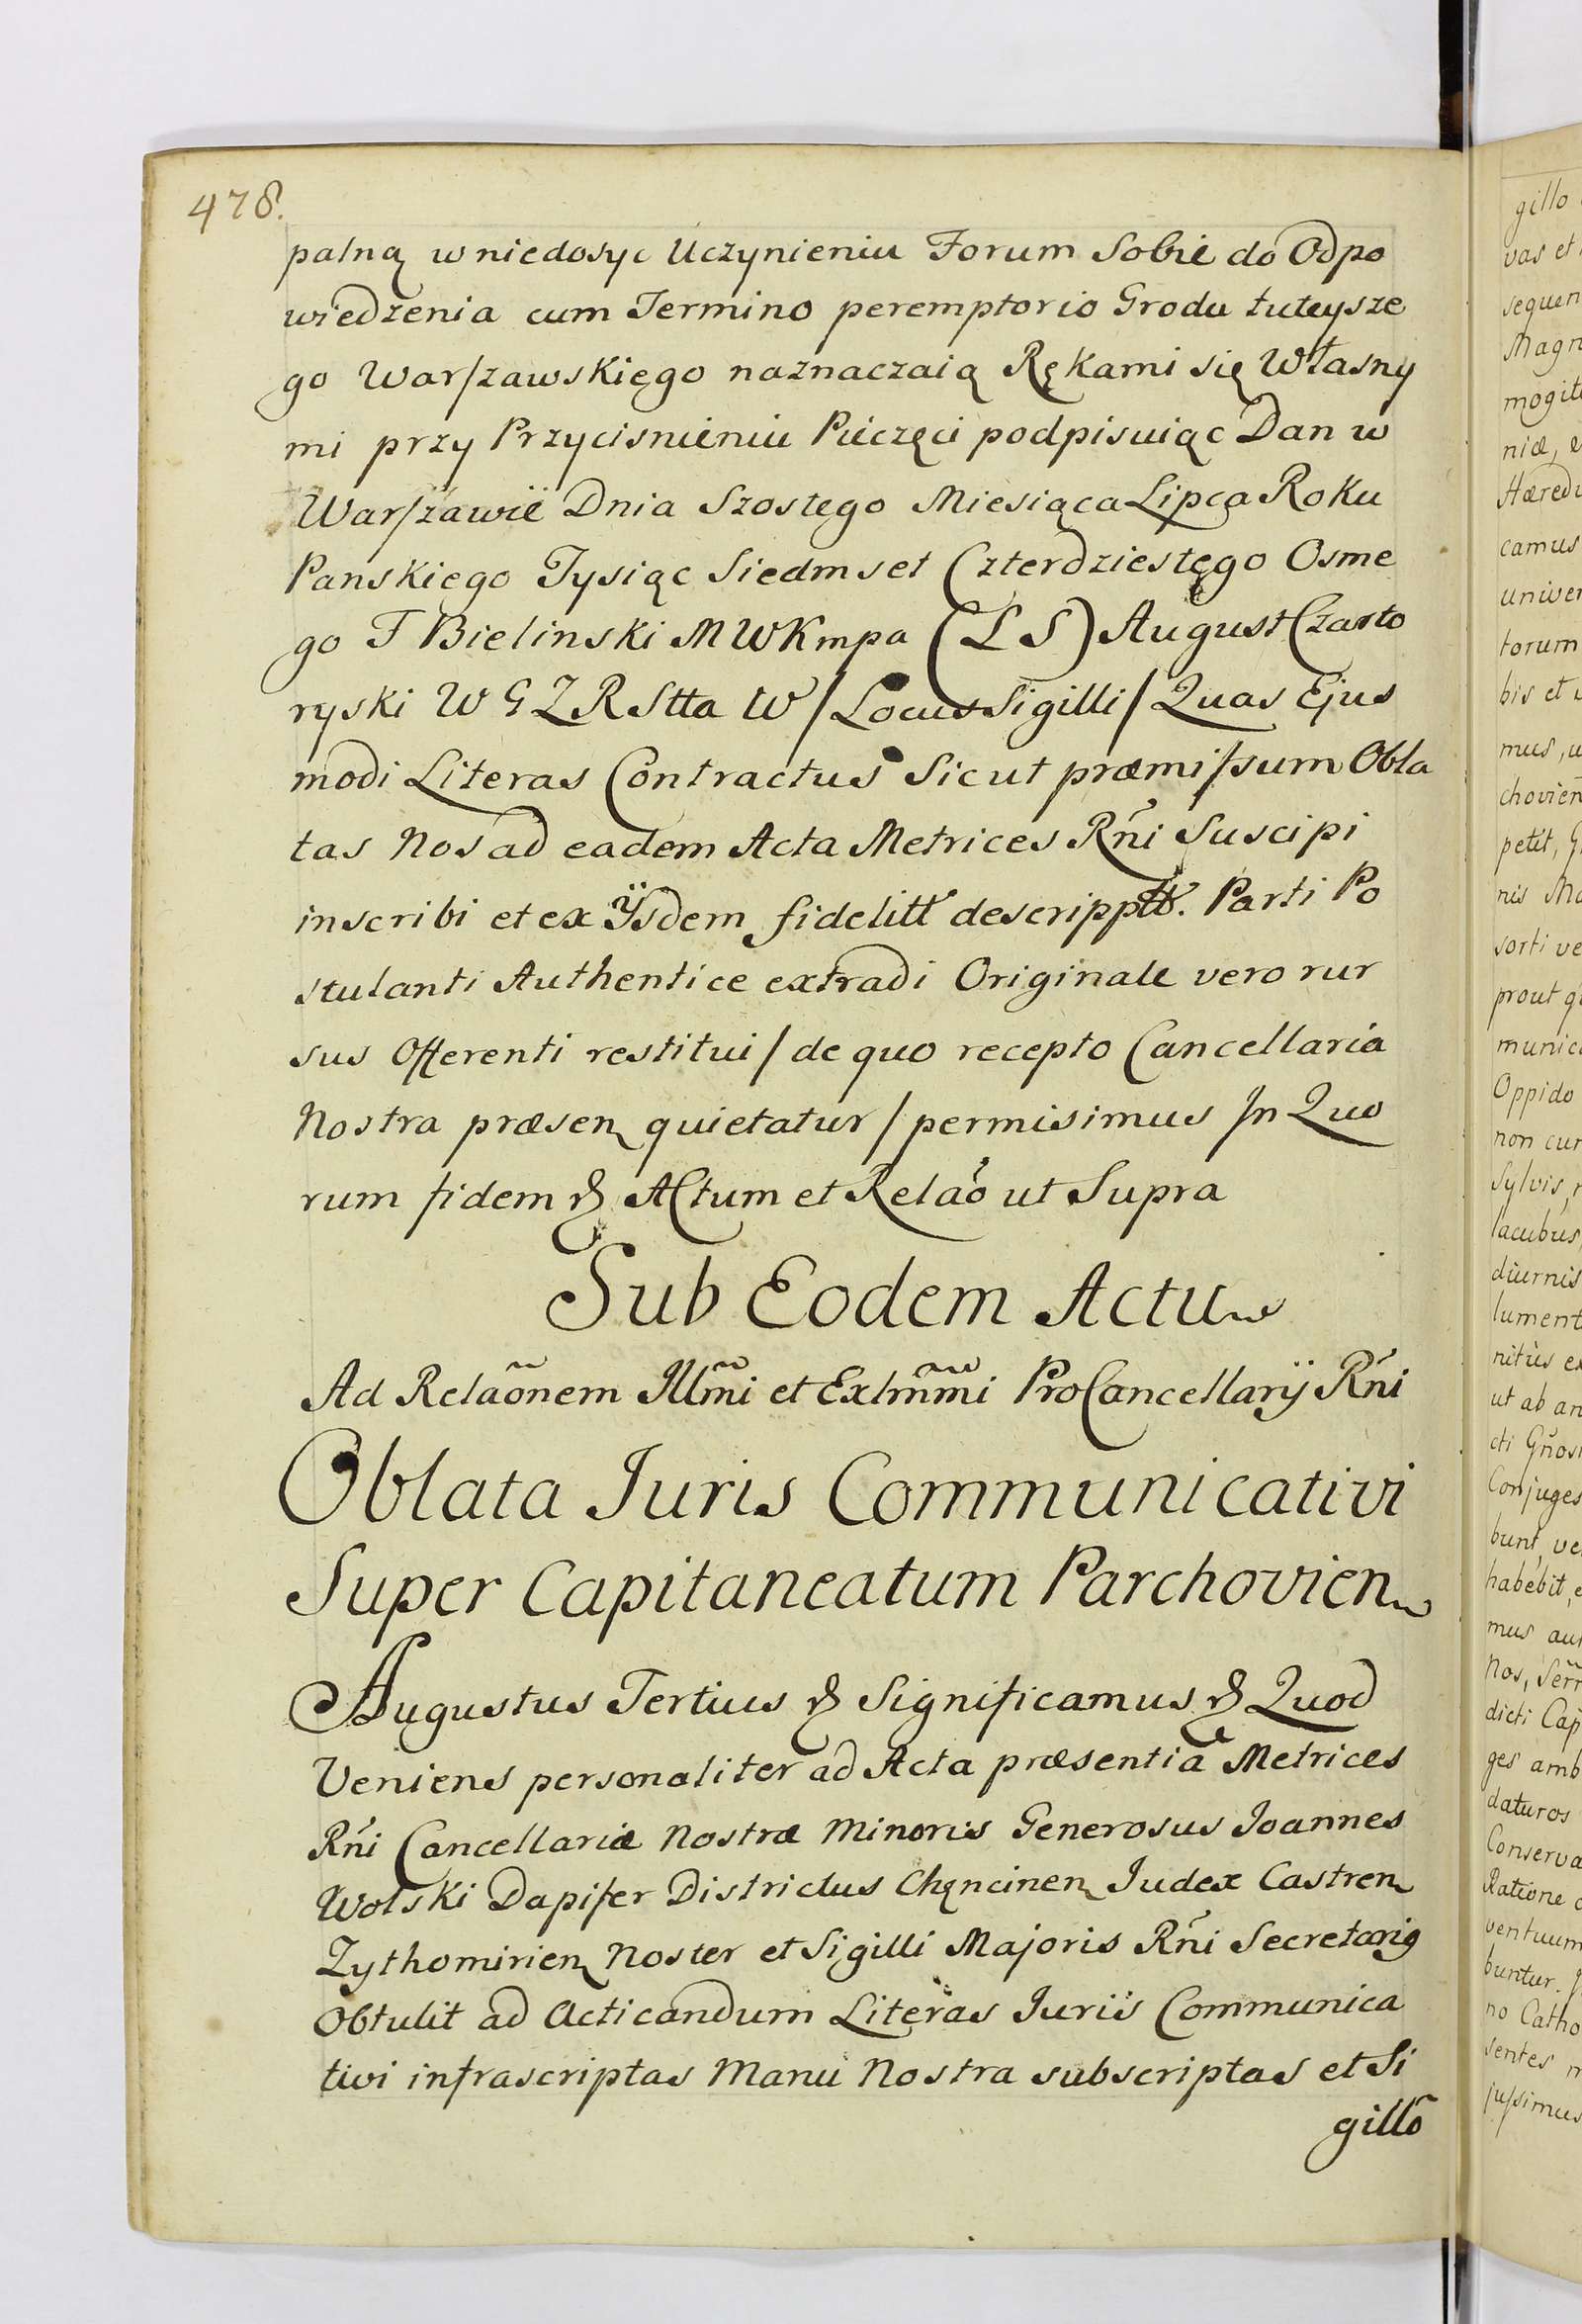 478.
palną w niedosyc Uczynieniu Forum Sobie do Odpo
wiedzenia cum Termino peremptorio Grodu tuteysze
go Warszawskięgo naznaczaią Rękami się Własny
mi przy Przycisnieniu Pieczęci podpisuiąc Dan w
Warszawie Dnia Szostego Miesiąca Lipca Roku
Panskiego Tysiąc Siedmset Czterdziestęgo Osme
go F Bielinski MWKmpa (LS) August Czarto
ryski W G Z R Stta W /Locus Sigilli/ Quas Ejus
modi Literas Contractus Sicut præmissum Obla
tas Nos ad eadem Acta Metrices Rñi Suscipi
inscribi et ex Ÿsdem fidelitt descripptt. Parti Po
stulanti Authentice extradi Originale vero rur
sus Offerenti restitui / de quo recepto Cancellaria
Nostra præsen quietatur / permisimus In Quo
rum fidem & Actum et Relão ut Supra
Sub Eodem Actu
Ad Relaõnem Illm̃i et Exlm̃mi ProCancellarÿ Rñi
Oblata Juris Communicativi
Super Capitaneatum Parchovien
Augustus Tertius & Significamus & Quod
Veniens personaliter ad Acta præsentia Metrices
Rñi Cancellariæ Nostræ Minoris Generosus Joannes
Wolski Dapifer Districtus Chęncinen Judex Castren
Zythomirien Noster et Sigilli Majoris Rñi Secretarig
Obtulit ad Acticandum Literas Juris Communica
tivi infrascriptas Manu Nostra subscriptas et Si
gillõ
gillo
vas et
sequen
Magn
mogit
niæ,
Hæred
camus
univer
torum
bis et
mus, u
chovien
petit,
nis Ma
sorti ve
prout
munic
Oppido
non cur
Sylvis,
lacubus,
diurnis
lument
nitus ex
ut ab an
cti Gñosi
Conjuges
bunt, ve
habebit,
mus au
Nos, Serr
dicti Cap
ges amb
daturos
Conserva
Ratione
ventuum
buntur.
no Catho
sentes
jussimus